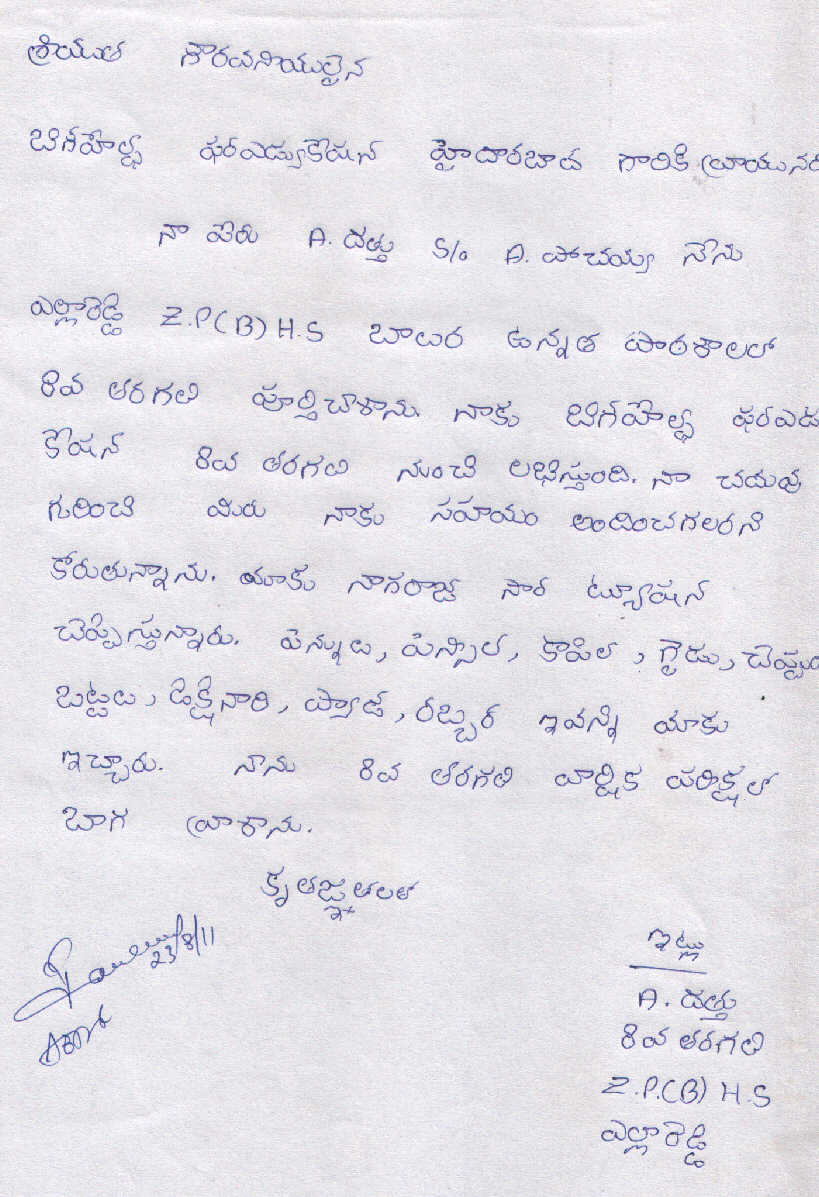 శ్రీయుత గౌరవనియులైన
బిగ్‌హెల్ప్ ఫర్‌ఎడ్యుకేషన్ హైదారబాద్ గారికి వ్రాయునది
నా పేరు A. దత్తు S/o A. పోచయ్య నేను
ఎల్లారెడ్డి Z.P.(B) H.S బాలుర ఉన్నత పాఠశాలలో
8వ తరగతి పూర్తిచేశాను. నాకు బిగ్‌హెల్ప్ ఫర్‌ఎడ్యు
కేషన్ 8వ తరగతి నుంచి లభిస్తుంది. నా చదువు
గురించి మీరు నాకు సహాయం అందించగలరని
కోరుతున్నాను. మాకు నాగరాజ్ సార్ ట్యూషన్
చెప్పిస్తున్నారు. పెన్నులు, పెన్సిల్, కాపీలు, గైడు,
బట్టలు, డిక్షినారి, ప్యాడ్, రబ్బర్ ఇవన్ని మాకు
ఇచ్చారు. నాను 8వ తరగతి వార్షిక పరీక్షలో
బాగ వ్రాశాను.
కృతజ్ఞతలతో
23/8/11
ఇట్లు
A. దత్తు
8వ తరగతి
Z.P.(B) H.S
ఎల్లారెడ్డి